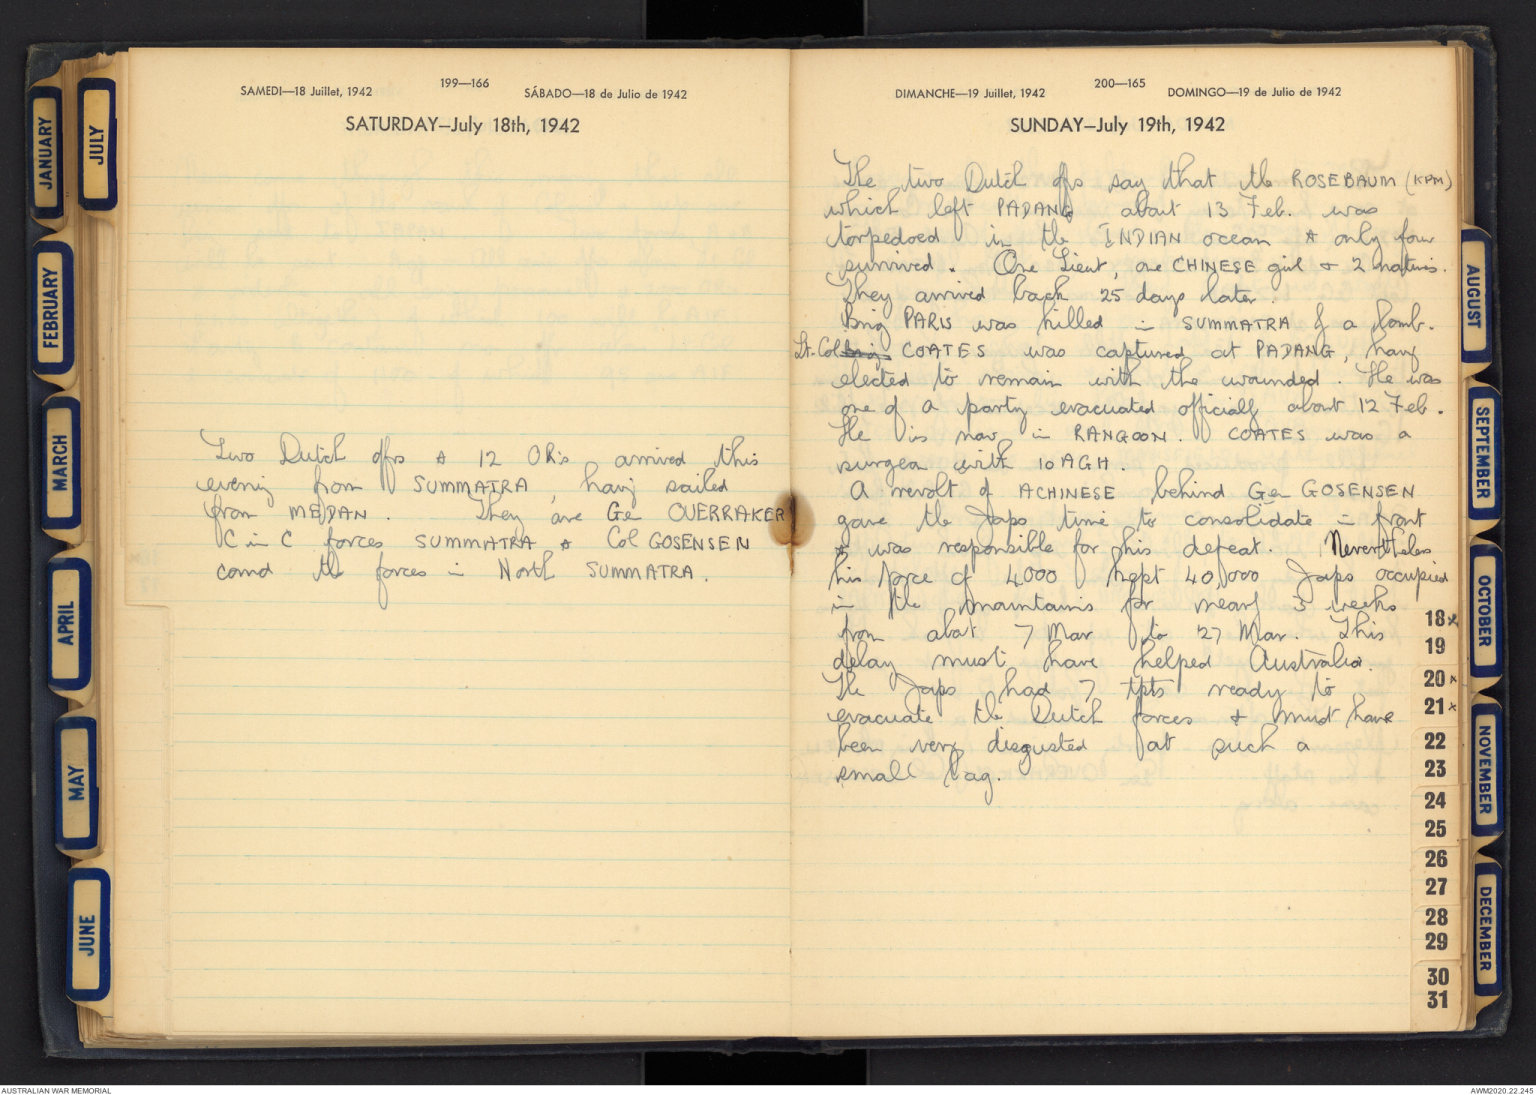 JANUARY
FEBRUARY
MARCH
APRIL
MAY
JUNE
JULY
SAMEDI—18 Juillet, 1942
199—166
SÁBADO—18 de Julio de 1942
SATURDAY—July 18th, 1942
Two Dutch offrs & 12 ORs arrived this
evening from SUMMATRA, having sailed
from MEDAN. They are Ge OUERRAKER
C in C forces SUMMATRA & Col GOSENSEN
comd the forces in North SUMMATRA.
DIMANCHE—19 Juillet, 1942
200—165
DOMINGO—19 de Julio de 1942
SUNDAY—July 19th, 1942
The two Dutch offs say that the ROSEBAUM (KPM)
which left PADANG about 13 Feb. was
torpedoed in the INDIAN ocean & only four
survived. One Lieut, one CHINESE girl & 2 natives.
They arrived back 25 days later.
Brig PARIS was killed in SUMMATRA of a bomb.
Lt-Col Brig COATES was captured at PADANG, having
elected to remain with the wounded. He was
one of a party evacuated officially about 12 Feb.
He is now in RANGOON. COATES was a
surgeon with 10 AGH.
A revolt of ACHINESE behind Ge GOSENSEN
gave the Japs time to consolidate in front
& was responsible for his defeat. Nevertheless
his force of 4000 kept 40,000 Japs occupied
in the mountains for nearly 3 weeks
from about 7 Mar to 27 Mar. This
delay must have helped Australia.
The Japs had 7 tpts ready to
evacuate the Dutch forces & must have
been very disgusted at such a
small bag.
18x
19
20x
21x
22
23
24
25
26
27
28
29
30
31
AUGUST
SEPTEMBER
OCTOBER
NOVEMBER
DECEMBER
AUSTRALIAN WAR MEMORIAL
AWM2020.22.245